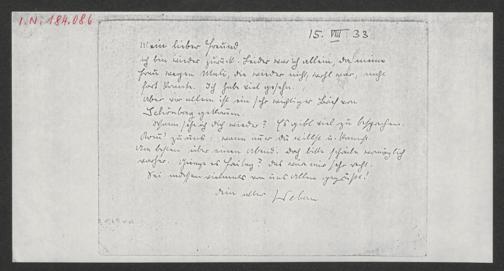 I.N. 184.086
15. VIII 33
Mein lieber Freund,
ich bin wieder zurück. Leider war ich allein, da meine
Frau wegen Mali, die wieder nicht wohl war, nicht
fort konnte. Ich habe viel gesehn.
Aber vor allem ist ein sehr wichtiger Brief von
Schönberg gekommen.
Wann seh ich dich wieder? Es gibt viel zu besprechen.
Komm' zu uns, wann nur du willst u. kannst.
Am besten über einen Abend. Doch bitte schreibe womöglich
vorher. Ginge es Freitag? Das wäre mir sehr recht.
Sei nochmals von uns Allen gegrüßt!
Dein alter Webern